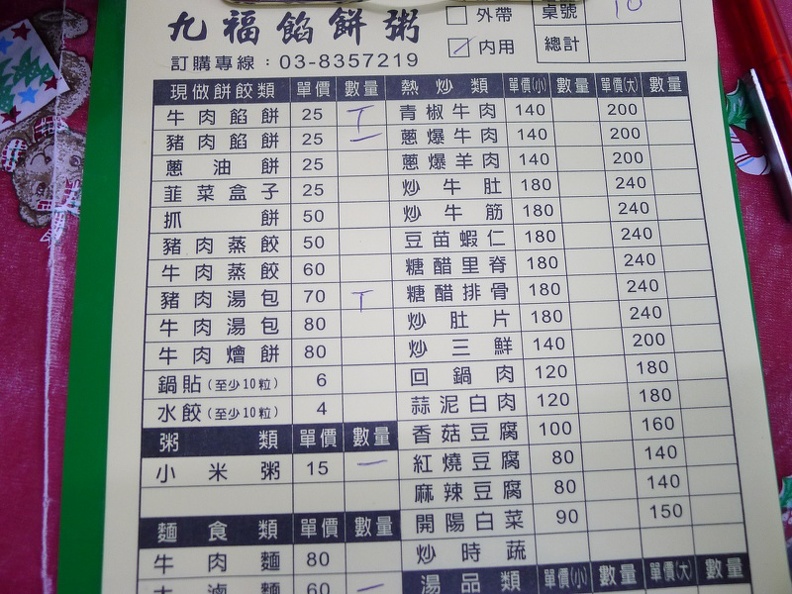 九福餡餅粥
外帶
內用
桌號 10
總計
訂購專線：03-8357219
現做餅餃類 單價 數量 熱炒類 單價(小) 數量 單價(大) 數量
牛肉餡餅 25 T 青椒牛肉 140 200
豬肉餡餅 25 一 蔥爆牛肉 140 200
蔥油餅 25 蔥爆羊肉 140 200
韮菜盒子 25 炒牛肚 180 240
抓餅 50 炒牛筋 180 240
豬肉蒸餃 50 豆苗蝦仁 180 240
牛肉蒸餃 60 糖醋里脊 180 240
豬肉湯包 70 T 糖醋排骨 180 240
牛肉湯包 80 炒肚片 180 240
牛肉燴餅 80 炒三鮮 140 200
鍋貼(至少10粒) 6 回鍋肉 120 180
水餃(至少10粒) 4 蒜泥白肉 120 180
粥類 單價 數量 香菇豆腐 100 160
小米粥 15 一 紅燒豆腐 80 140
麻辣豆腐 80 140
麵食類 單價 數量 開陽白菜 90 150
牛肉麵 80 炒時蔬
大滷麵 60 一 湯品類 單價(小) 數量 單價(大) 數量